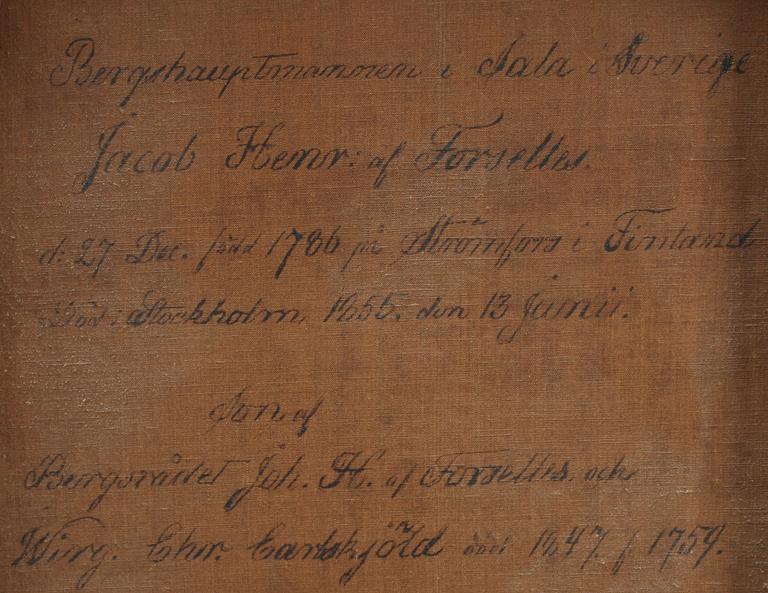 Bergshauptmannen i Sala i Sverige
Jacob Henr: af Forselles.
d: 27 Dec. född 1786 på Strömfors i Finland
Död i Stockholm, 1855. den 13 Junii.
Son af
Bergsrådet Joh. H. af Forselles, och
Wirg. Chr. Carlskjöld död 1847 f 1759.